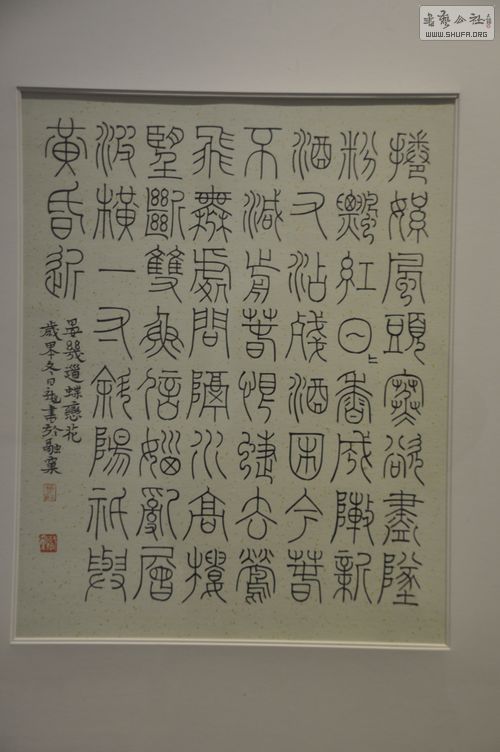 書藝公社
WWW.SHUFA.ORG
捲絮風頭寒欲盡墜
粉飄紅日〻香成陣新
酒又沾殘酒困今春
不減前春恨蜨去鶯
飛無處問隔水高樓
望斷雙魚信惱亂層
波橫一寸斜陽祇與
黃昏近
晏幾道蝶戀花
冬日書於融窠